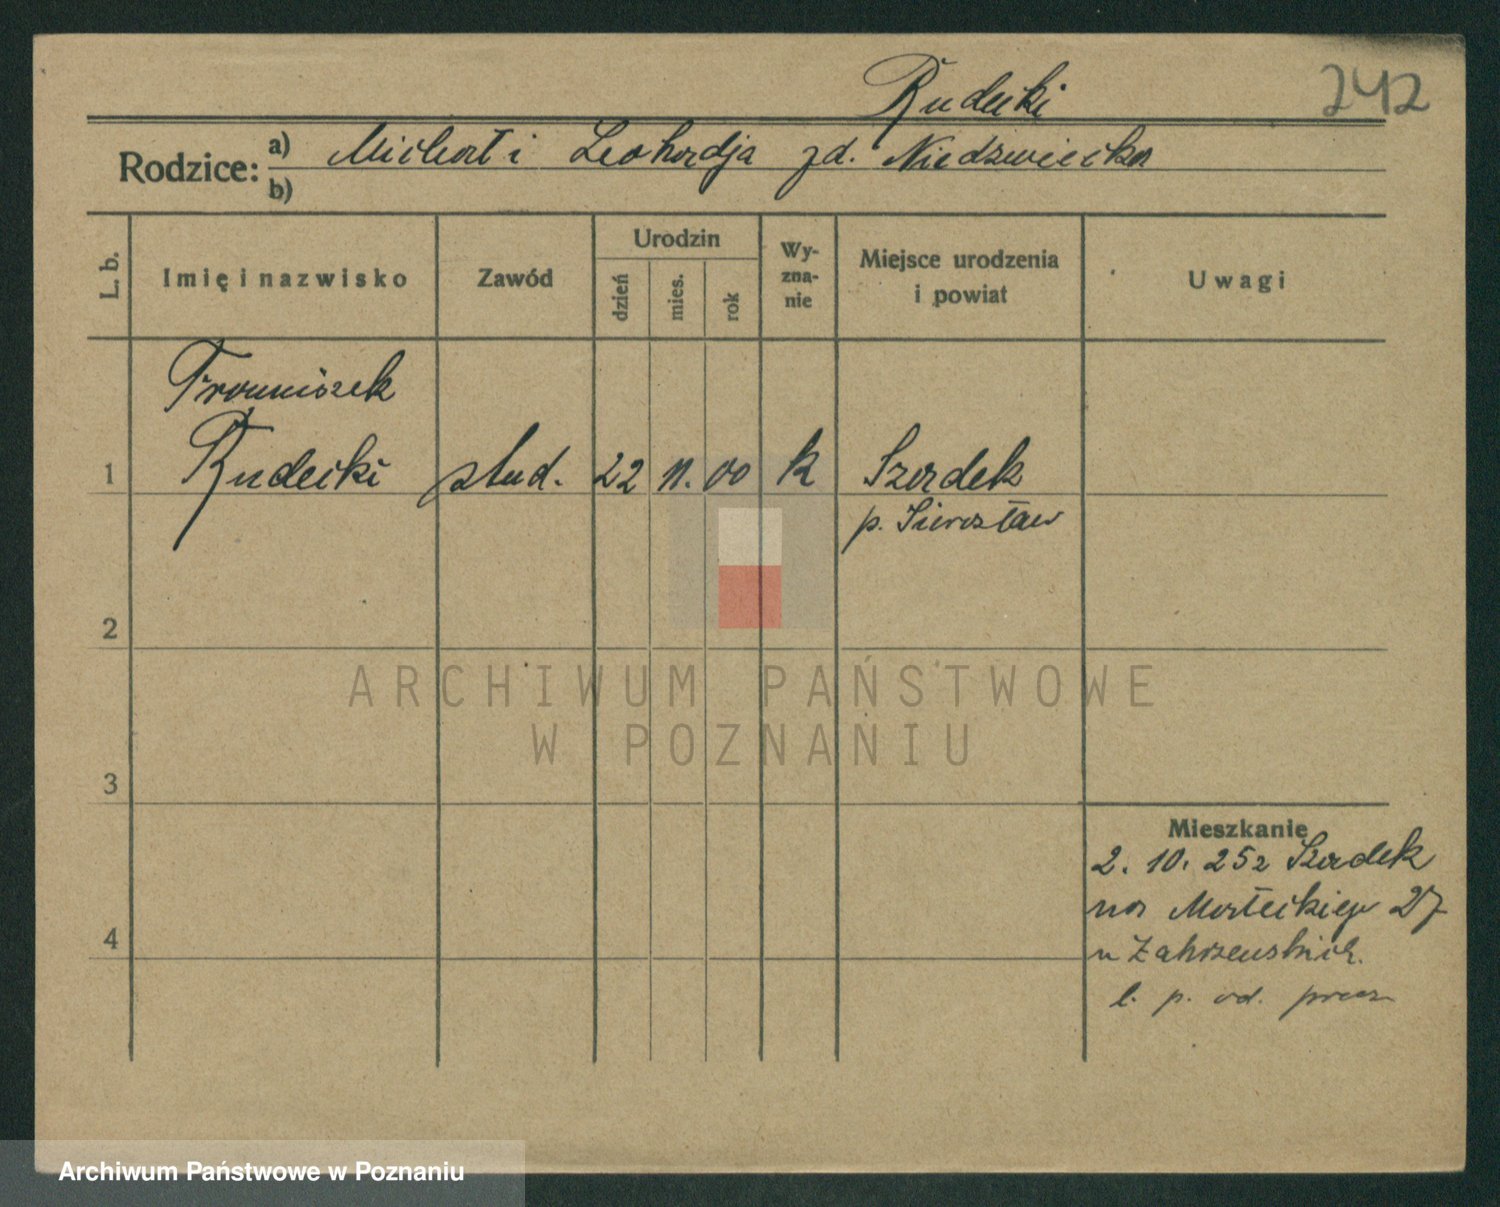 Rudecki
242
Rodzice:
a) Michał i Leokadja zd. Niedzwiecka
b)
L. b.
Imię i nazwisko
Zawód
Urodzin
dzień
mies.
rok
Wy-
zna-
nie
Miejsce urodzenia
i powiat
Uwagi
Franciszek
1 Rudecki stud. 22 11. 00 k Szadek
p. Sieradz
2
ARCHIWUM PAŃSTWOWE
W POZNANIU
3
Mieszkanie
2. 10. 25 z Szadek
na Małeckiego 27
4
u Zakrzewskich.
Archiwum Państwowe w Poznaniu